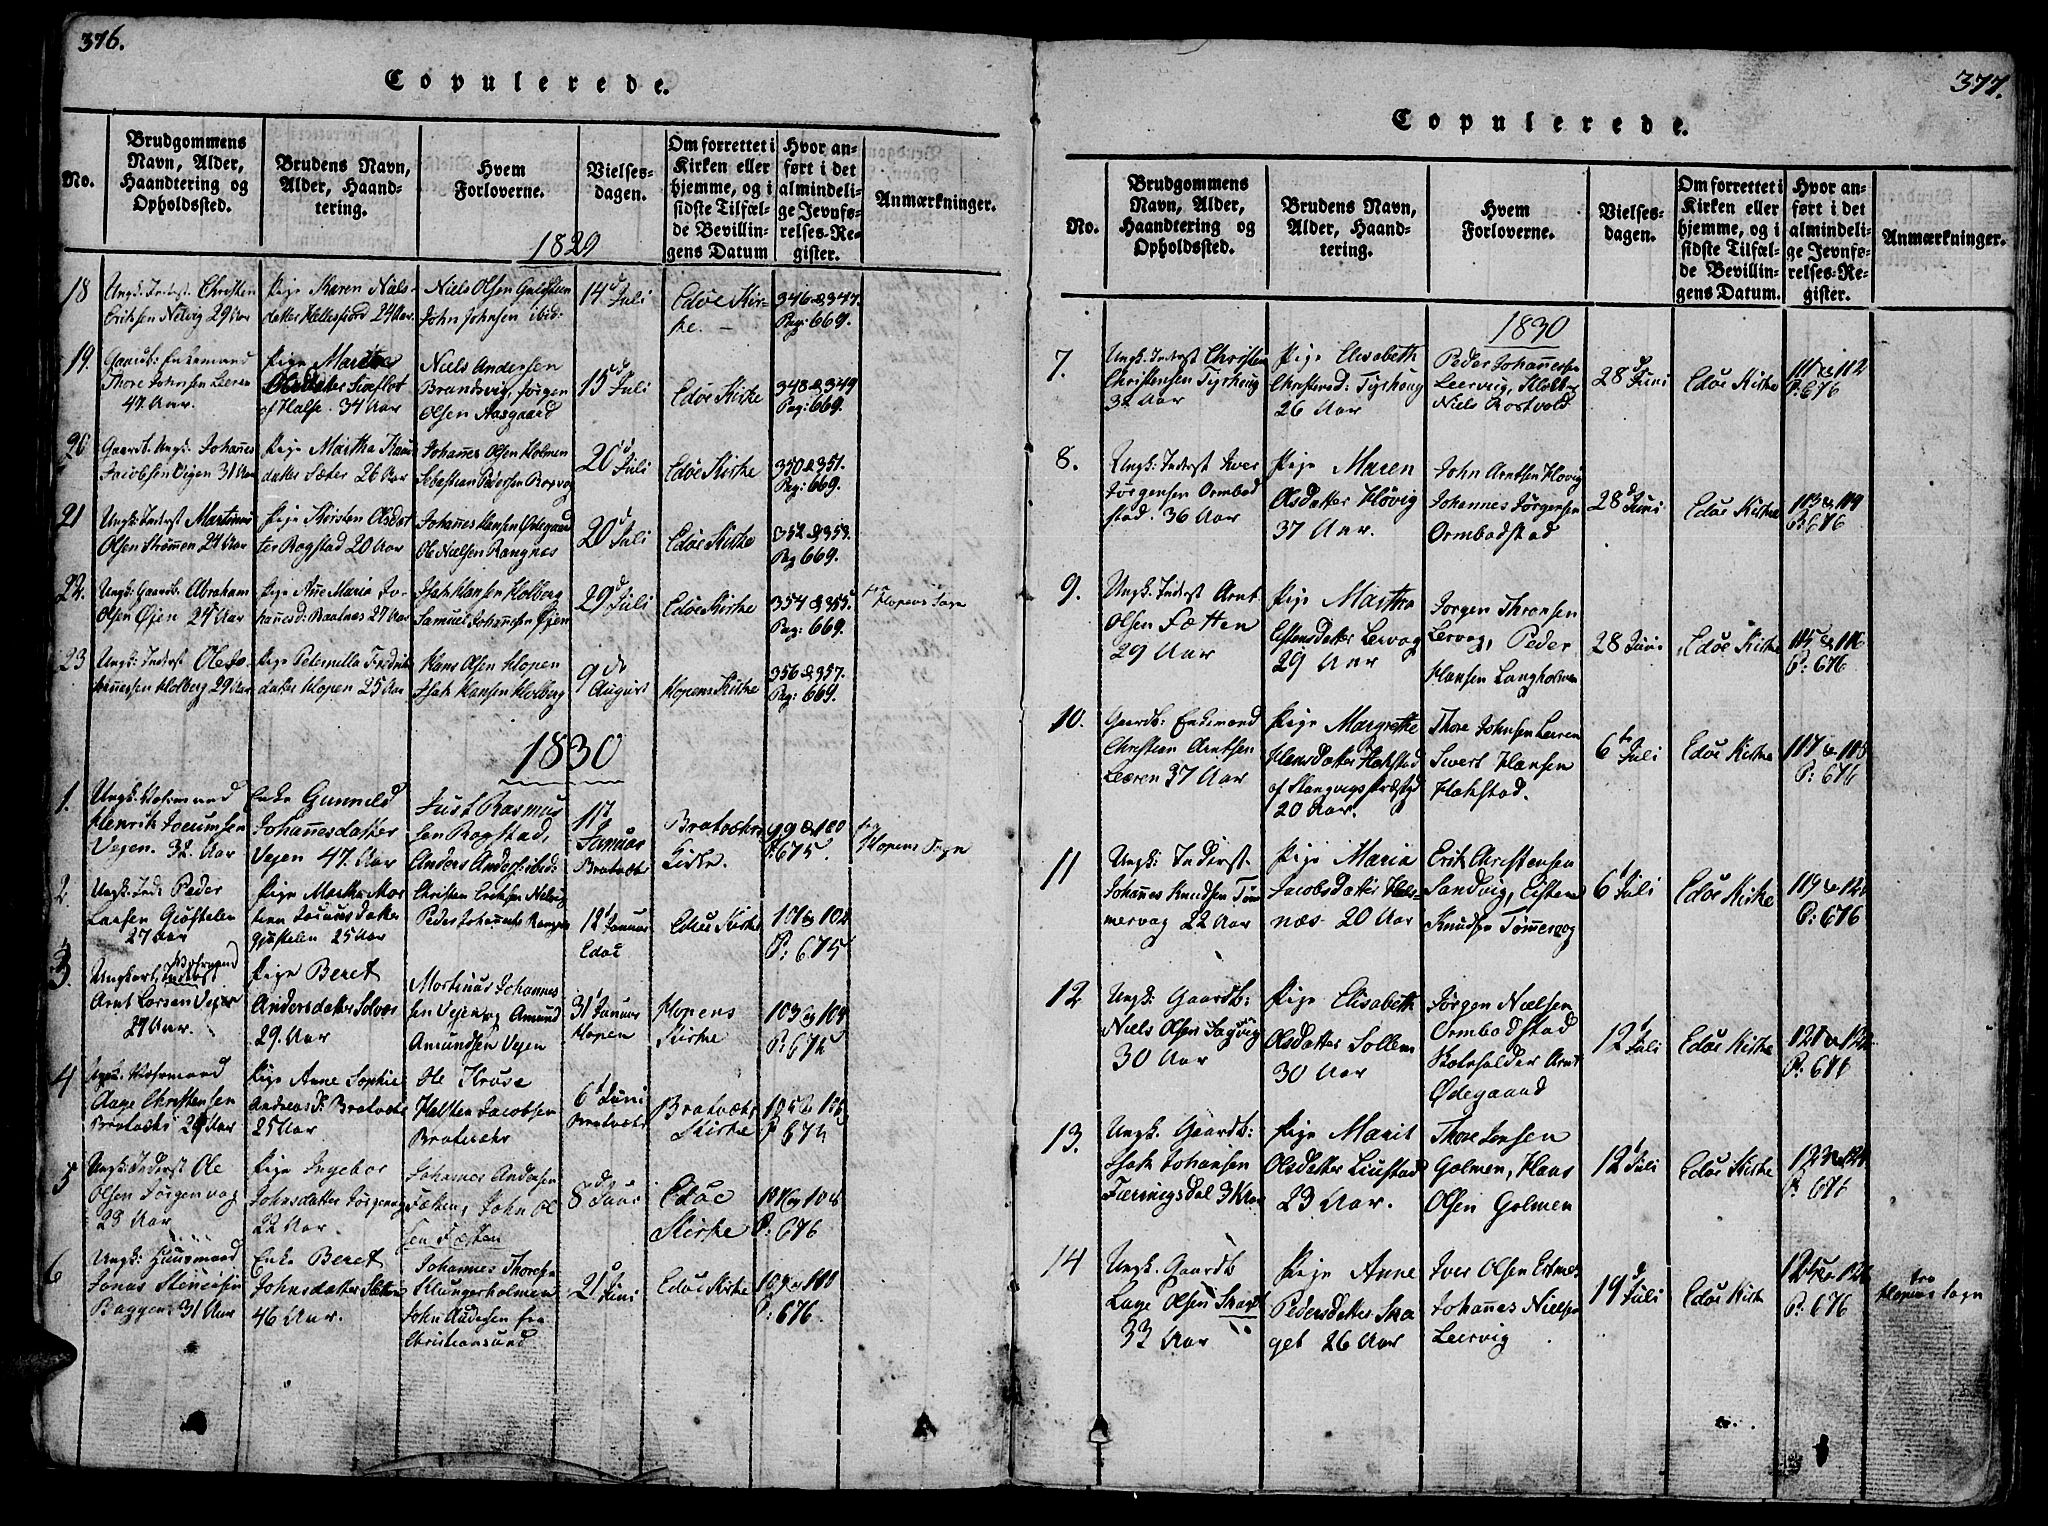 376.
Copulerede.
No.
Brudgommens
Navn, Alder,
Haandtering og
Opholdssted.
Brudens Navn,
Alder, Haand-
tering.
Hvem
Forloverne.
Vielses-
dagen.
Om forrettet i
Kirken eller
hjemme, og i
sidste Tilfæl-
de Bevillin-
gens Datum
Hvor an-
ført i det
almindeli-
ge Jevnfø-
relses-Re-
gister.
Anmærkninger.
1829
18
Ungk: Inderst. Christen
Eriksen Nelvig 29 Aar
Pige Karen Niels-
datter Hellesfiord 24 Aar
Niels Olsen
John Johnsen ibid:
14 d Juli
Edøe Kir-
ke.
346 & 347.
Pag: 669.
19.
Gaardb: Enkemand
Thore Johnsen Leeren
47 Aar.
Pige
af Halse. 34 Aar
Niels Andersen
Brandsvig, Jørgen
Olsen Aasgaard
15 d Juli
Edøe Kirke
348 & 349
Pag: 669.
20
Gaardb. Ungk. Johannes
Jacobsen 31 Aar
Pige Martha
datter Sæter 26 Aar
Johannes Olsen Holmen
Sebastian Pedersen
20 d Juli
Edøe Kirke
350 & 351.
Pag: 669.
21
Ungk: Inderst Martinus
Olsen Strømmen 24 Aar
Pige Kirsten Olsdat
ter Rogstad 20 Aar
Johannes Hansen Ødegaard
Ole Nielsen Rangnæs
20 d Juli
Edøe Kirke
352 & 353.
Pag 669.
22.
Ungk: Gaardb. Abraham
Olsen Øjen 24 Aar
Pige Ane Maria Jo-
hannesd: 27 Aar
Isak Hansen Holberg
Samuel Johannesen Øjen
29 d Juli
Edøe Kirke
354 & 355.
Pag: 669.
fra Hopens Sogn
23
Ungk: Inderst Ole Jo-
hannessen Holberg 29 Aar
Pige Peternilla Fredriks
datter Hopen 25 Aar
Hans Olsen Hopen
Isak Hansen Holberg
9 de
August
Hopens Kirke
356 & 357.
Pag: 669.
1830
1.
Henrik Jocumsen
Vejen. 32. Aar
Enke Gunnild
Johannesdatter
Vejen 47 Aar
Just Rasmus
sen Rogstad,
Anders Anders: ibid:
17
Januar
Bratvær
Bratværs
Kirke.
99 & 100
P: 675.
fra
Hopens Sogn
2.
Ungk: Ind: Peder
Larsen Giøstelen
27 Aar
Pige Martha Mar
gjøstelen 25 Aar
Christen Eriksen Nelvig
Peder Johannes
12 t Januar
Edøe
Edøe Kirke
101 & 102
P: 675
3.
Arnt Larsen Vejen
27 Aar.
Pige Beret
Andersdatter
29. Aar
Martinus Johannes
sen Vejen og Amund
Amundsen Vejen
31 t Januar
Hopen
Hopens
Kirke
103 & 104
P: 675
4
Aage Christensen
Bratvær 29 Aar
Pige Anne Sophie
Andreas D: Bratvær
25 Aar.
Ole Kruse
Halsten Jacobsen
Bratvær
6 t Juni
Bratvær
Bratværs
Kirke
105 & 106
P 675
5
Ungk: Inderst Ole
Olsen Jørgenvog
23 Aar
Pige Ingebor
Johnsdatter Jørgenvog
22 Aar.
Johannes Andersen
Fætten, John Ol
sen Fætten
8 d Juni
Edøe
Kirke
107 & 108
P: 676
6
Ungk: Huusmand
Jonas Steneisen
Baggen: 31 Aar
Enke Beret
Johnsdatter
46 Aar.
Johannes Thoresen
Klungerholmen
John Andersen fra
Christiansund
21 d Juni
Edøe Kirke
109 & 110
P: 676.
377.
Copulerede.
No.
Brudgommens
Navn, Alder,
Haandtering og
Opholdssted.
Brudens Navn,
Alder, Haand-
tering.
Hvem
Forloverne.
Vielses-
dagen.
Om forrettet i
Kirken eller
hjemme, og i
sidste Tilfæl-
de Bevillin-
gens Datum.
Hvor an-
ført i det
almindeli-
ge Jevnfø-
relses-Re-
gister.
Anmærkninger.
1830
7.
Ungk: Inderst Christen
Christensen Tyrhoug
Aar
Pige Elisabeth
Christensd: Tyrhoug
26 Aar
Peder Johannessen
Leervig,
Niels Rostvold
28 d Juni
Edøe Kirke
111 & 112
P: 676
8.
Ungk: Inderst Iver
Jørgensen Ormbod
stad. 36 Aar
Pige Maren
Olsdatter Høvig
37 Aar.
John Arntsen Høvig
Johannes Jørgensen
Ormbodstad
28 d Juni
Edøe Kirke
113 & 114
P. 676
9.
Ungk: Inderst Arnt
Olsen Fætten
29 Aar
Pige Martha
Estensdatter Lervog
29 Aar
Jørgen Thronsen
Lervog, Peder
Hansen Langholmen
28 Juni
Edøe Kirke
115 & 116
P: 676
10.
Gaardb: Enkemand
Christian Arntsen
Leeren 37 Aar
Pige Margrethe
Hansdatter Hakstad
af Stangvigs Præstgd
20 Aar.
Thore Johnsen Leeren
Siwert Hansen
Hakstad.
6 te Juli
Edøe Kirke
117 & 118
P: 676
11
Ungk: Inderst.
Johannes Knudsen Tøm
mervog 22 Aar
Pige Maria
Jacobsdatter Hals-
næs 20 Aar
Erik Christensen
Sandvig, Eisten
Knudsen Tømmervog
6 t Juli
Edøe Kirke
119 & 120
P: 676
12
Ungk: Gaardb:
Niels Olsen Sagvig
30 Aar
Pige Elisabeth
Olsdatter Sollem
30 Aar
Jørgen Nielsen
Ormbodstad
Skoleholder Arnt
Ødegaard
12 t Juli
Edøe Kirke
121 & 122
P: 676
13.
Ungk. Gaardb:
Isak Johansen
Færingsdal 31 Aar
Pige Marit
Olsdatter Liustad
23 Aar.
Thore Jensen
Golmen, Hans
Olsen Golmen
12 t Juli
Edøe Kirke
123 & 124
P: 676
14
Ungk. Gaardb
Lage Olsen Skaget
33 Aar
Pige Anne
Pedersdatter Ska
get 26 Aar
Iver Olsen Ednæs
Johannes Nielsen
Leervig
19 d Juli
Edøe Kirke
125 & 126
P: 676
fra
Hopens Sogn